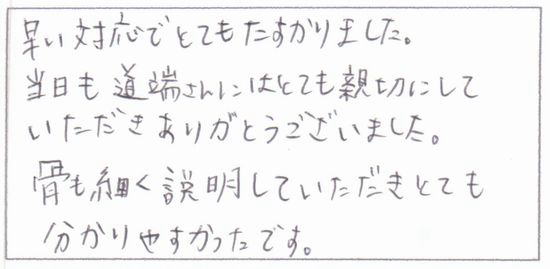 早い対応でとてもたすかりました。
当日も道端さんにはとても親切にして
いただきありがとうございました。
骨も細く説明していただきとても
分かりやすかったです。